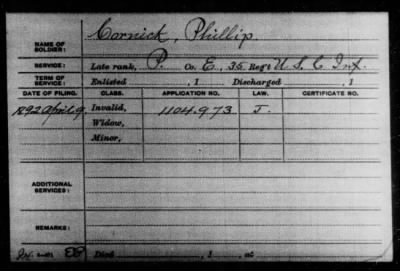 NAME OF SOLDIER: Cornick, Phillip
SERVICE: Late rank, P. Co. E, 35 Reg't U.S.C. Inf.
TERM OF SERVICE: Enlisted , 1 Discharged , 1
DATE OF FILING. CLASS. APPLICATION NO. LAW. CERTIFICATE NO.
1892 April 9 Invalid, 1104.973 J.
Widow,
Minor,
ADDITIONAL SERVICES:
REMARKS:
Died , 1 , at